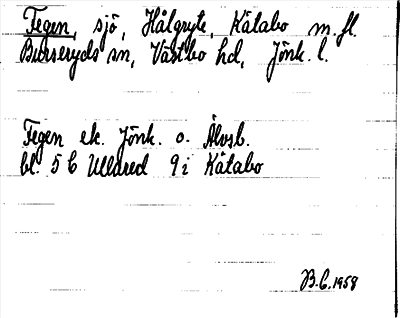 Fegen, sjö, Hålgryte, Kåtabo m.fl.
Burseryds sn, Västbo hd, Jönk. l.
Fegen ek. Jönk. o. Älvsb.
bl. 5 C Ullared 9 i Kåtabo
B.C. 1958